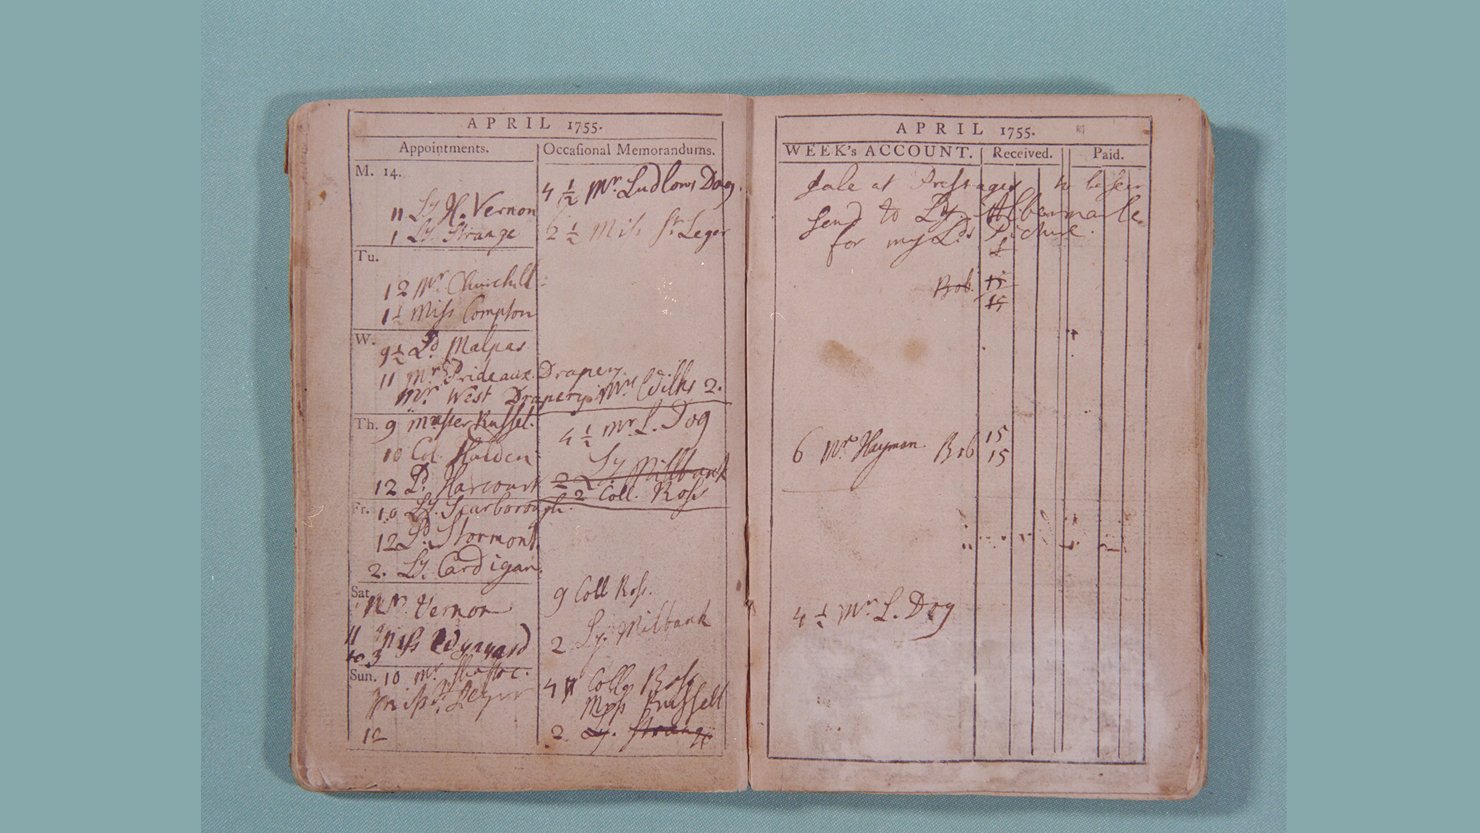 APRIL 1755.
Appointments.
Occasional Memorandums.
M. 14.
11 Ly. H. Vernon
1 Ly. Strange
4 1/2 Mr Ludlows Dog.
6 1/2 Miss St. Leger
Tu.
12 Mr. Churchill
1 1/2 Miss Compton
W.
9 1/2 Ld. Malpas
11 Mr Prideaux. Drapery.
Mr. West Drapery. Mrs Wilks 2.
Th. 9 Master Russel.
10 Col. Halden
12 Ld. Harcourt
4 1/2 Mr L. Dog
2 Ly Milbank
2 Coll. Ross
Fr. 10 Ly. Scarborough.
12 Ld. Stormont.
2. Ly. Cardigan.
Sat.
Vernon
11 Miss Wynyard
3
9 Coll Ross.
2 Ly. Milbank
Sun. 10 Mr. Shaftoe.
Miss St. Leger
12
4 Coll Ross
Miss Russell
2 Ly. Strange
APRIL 1755.
WEEK's ACCOUNT. Received. Paid.
Sale at Prestages to be seen
Send to Ly. Albermarle
for my Lds Picture.
Bob. 15
15
6 Mr Hayman. Bob 15
15
4 1/2 Mr. L. Dog